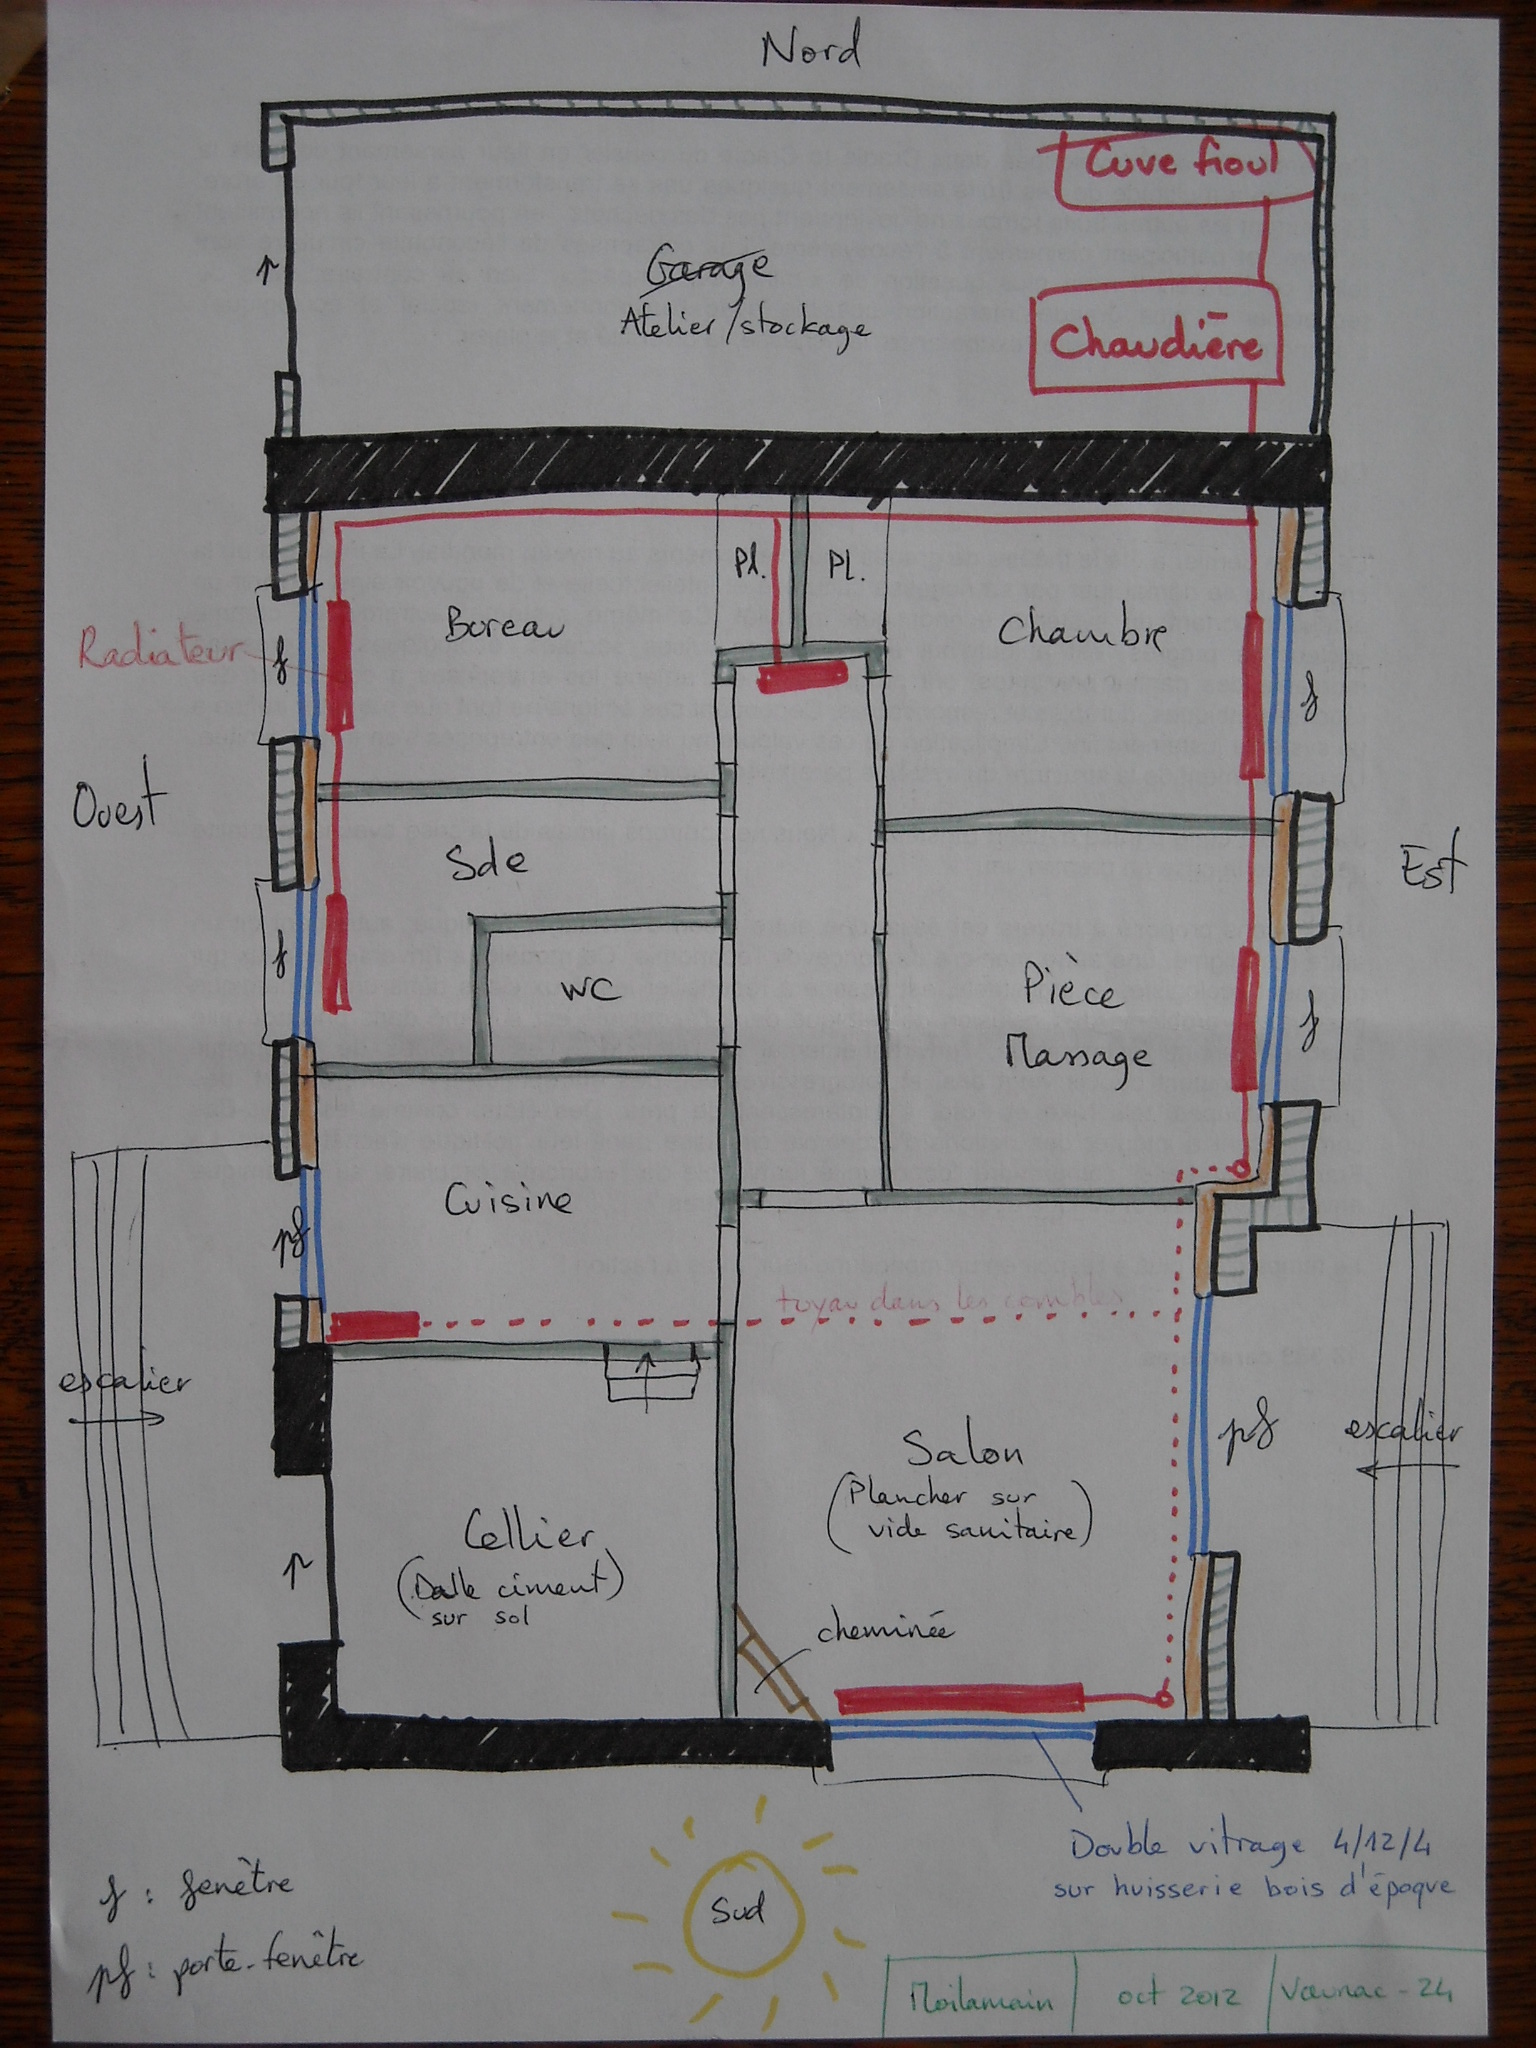 Nord
Cuve fioul
Garage
Atelier/stockage
Chaudière
Pl.
Pl.
Bureau
Chambre
Radiateur
f
f
Ouest
Sde
Est
f
wc
Pièce
Massage
f
Cuisine
pf
tuyau dans les combles
escalier
pf
escalier
Salon
(Plancher sur
vide sanitaire)
Cellier
(Dalle ciment)
sur sol
p
cheminée
Double vitrage 4/12/4
sur huisserie bois d'époque
Sud
f : fenêtre
pf : porte-fenêtre
Moilamain
oct 2012